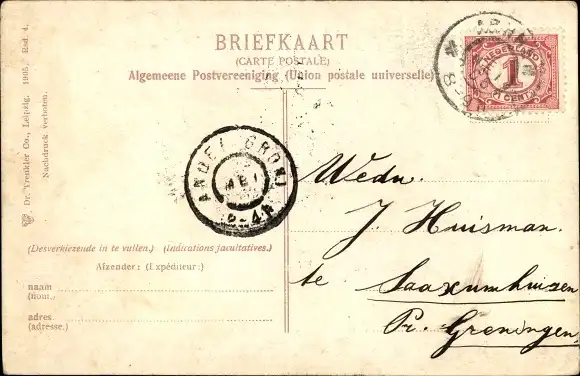 BRIEFKAART
(CARTE POSTALE)
Algemeene Postvereeniging (Union postale universelle)
NEDERLAND
1
1 CENT
ANDEL (GRON)
MEI
2-4N
Wedn.
J. Huisman.
te Saaxumhuizen
Pr. Groningen,
(Desverkiezende in te vullen.) (Indications facultatives.)
Afzender: (Expéditeur:)
naam
(nom.)
adres.
(adresse.)
Dr. Trenkler Co., Leipzig. 1905. Rsd. 4.
Nachdruck verboten.